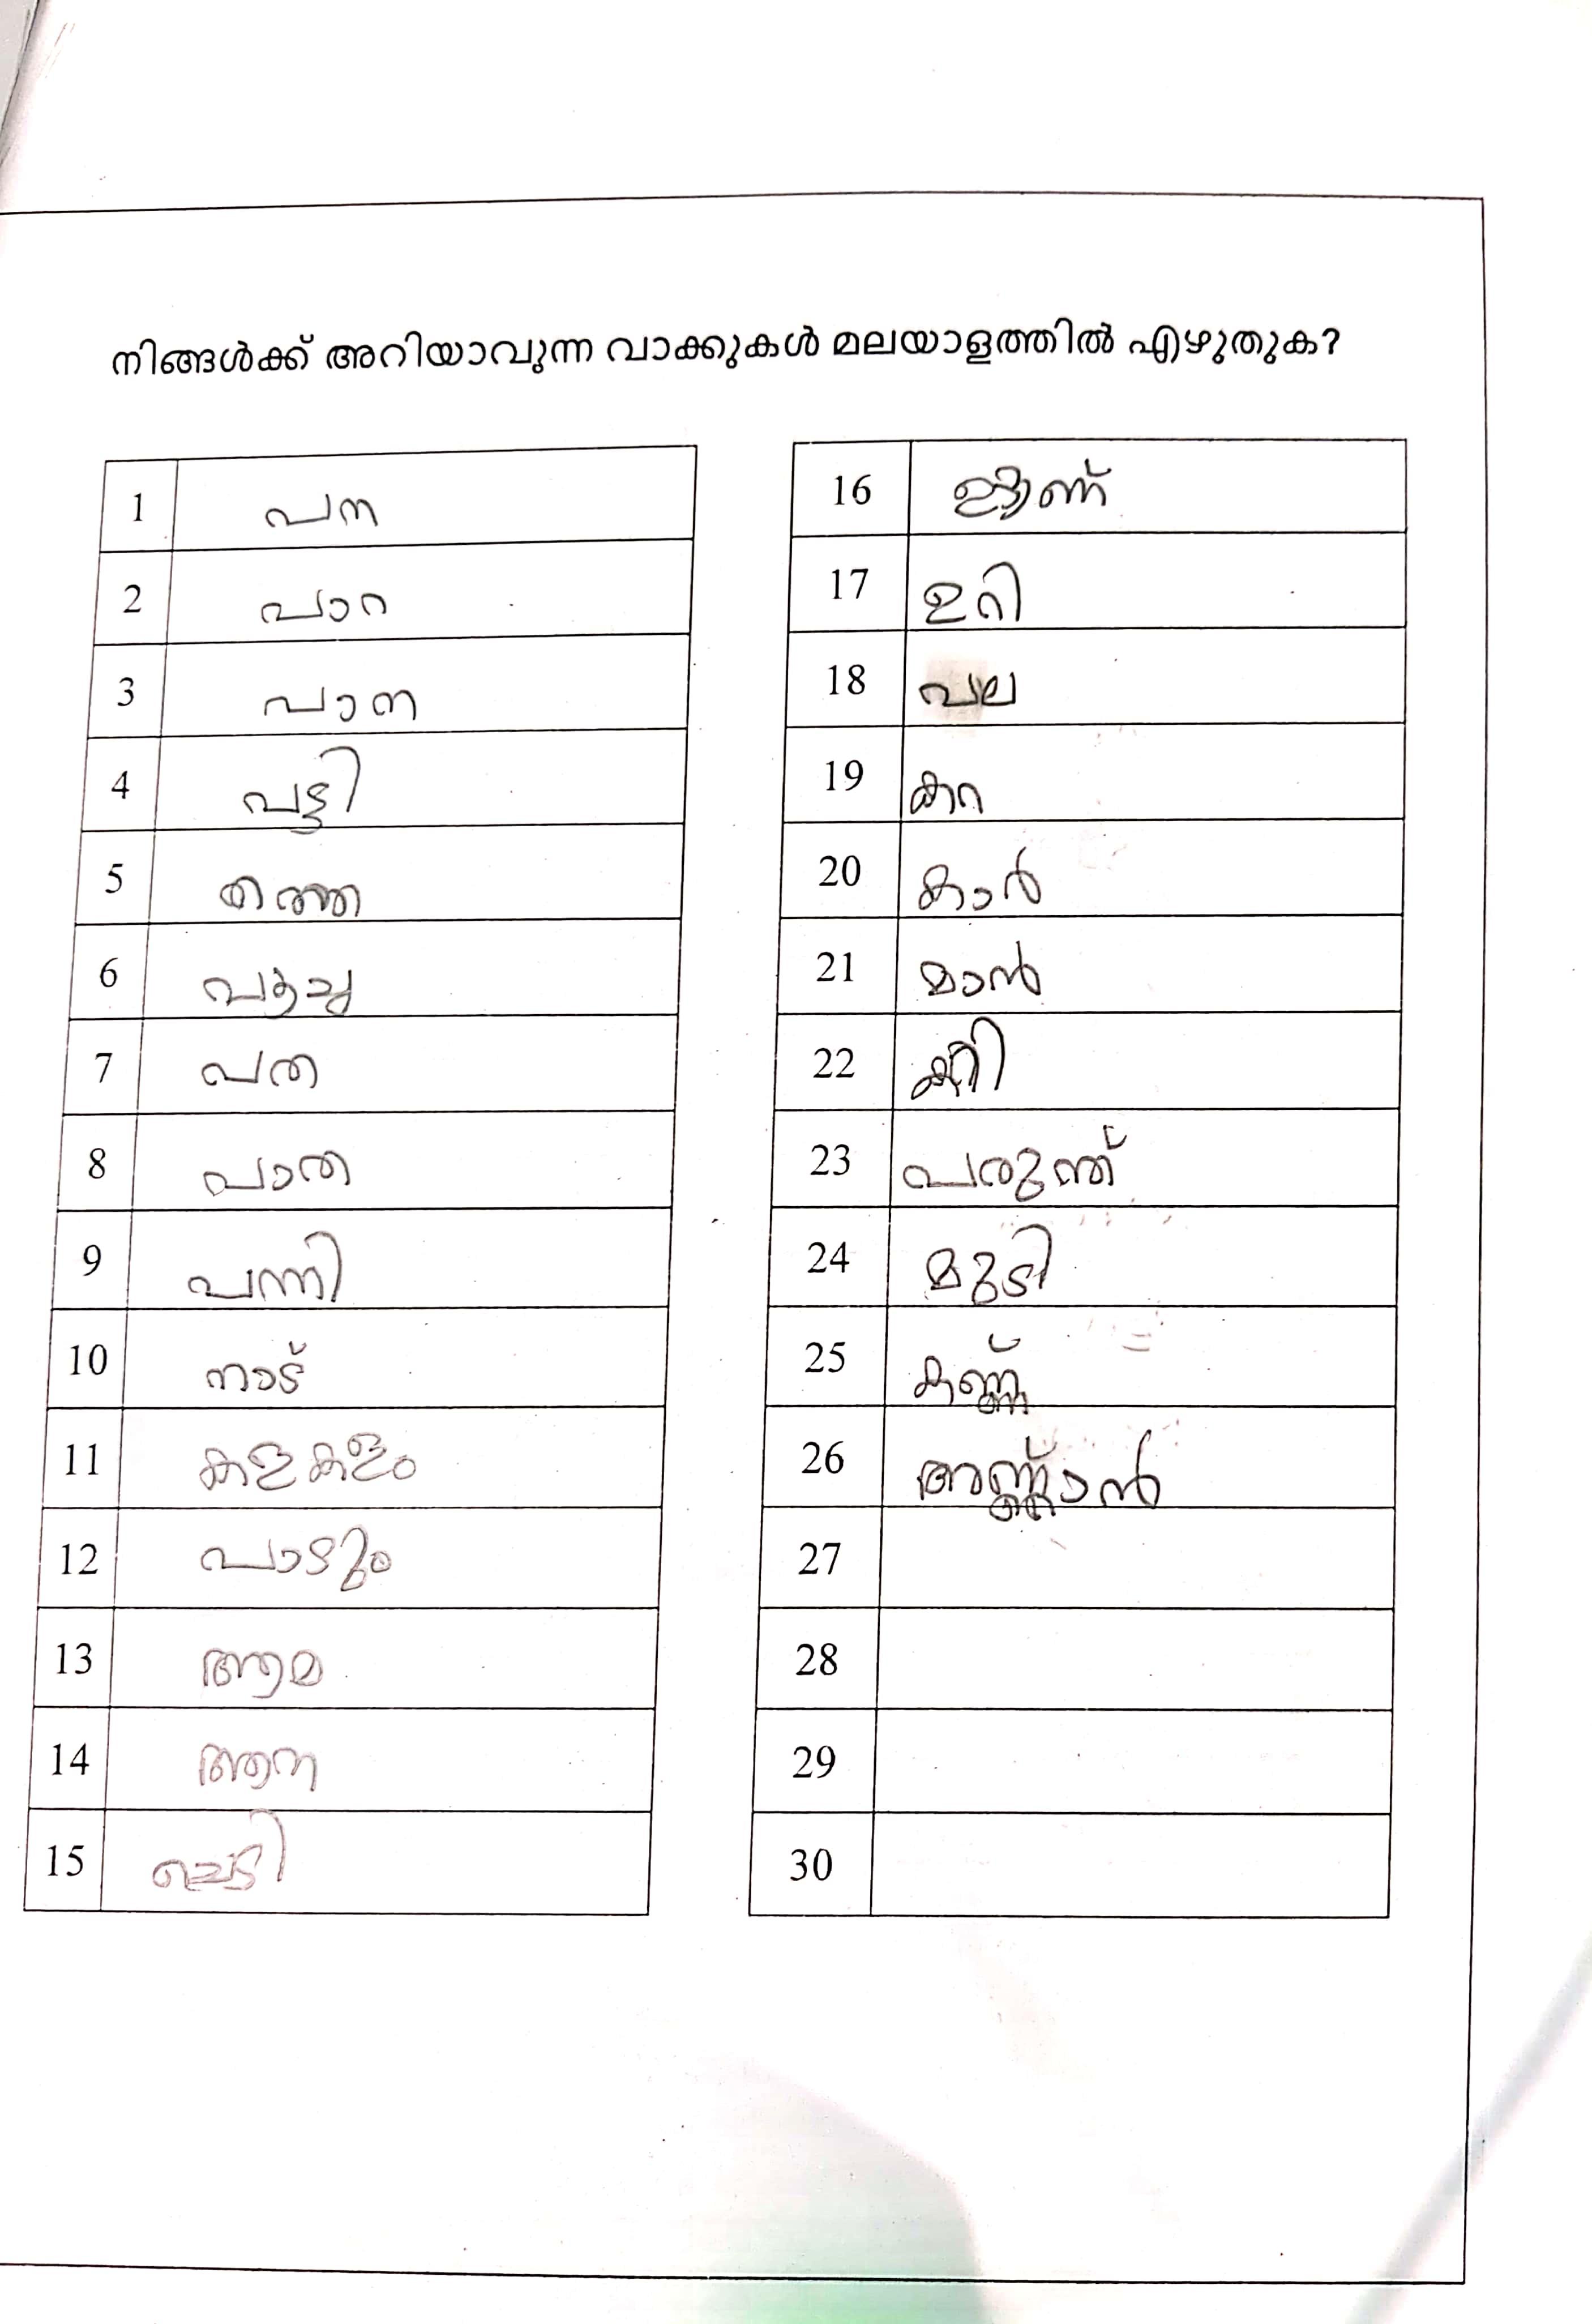 നിങ്ങൾക്ക് അറിയാവുന്ന വാക്കുകൾ മലയാളത്തിൽ എഴുതുക?
1 പന
2 പാറ
3 പാന
4 പട്ടി
5 തത്ത
6 പൂച്ച
7 പത
8 പാത
9 പന്നി
10 നാട്
11 കളകളം
12 പാടും
13 ആമ
14 ആന
15 ചെടി
16 ഊണ്
17 ഉറി
18 പല
19 കറ
20 കാർ
21 മാൻ
22 കറി
23 പരുന്ത്
24 മുടി
25 കണ്ണ്
26
27
28
29
30